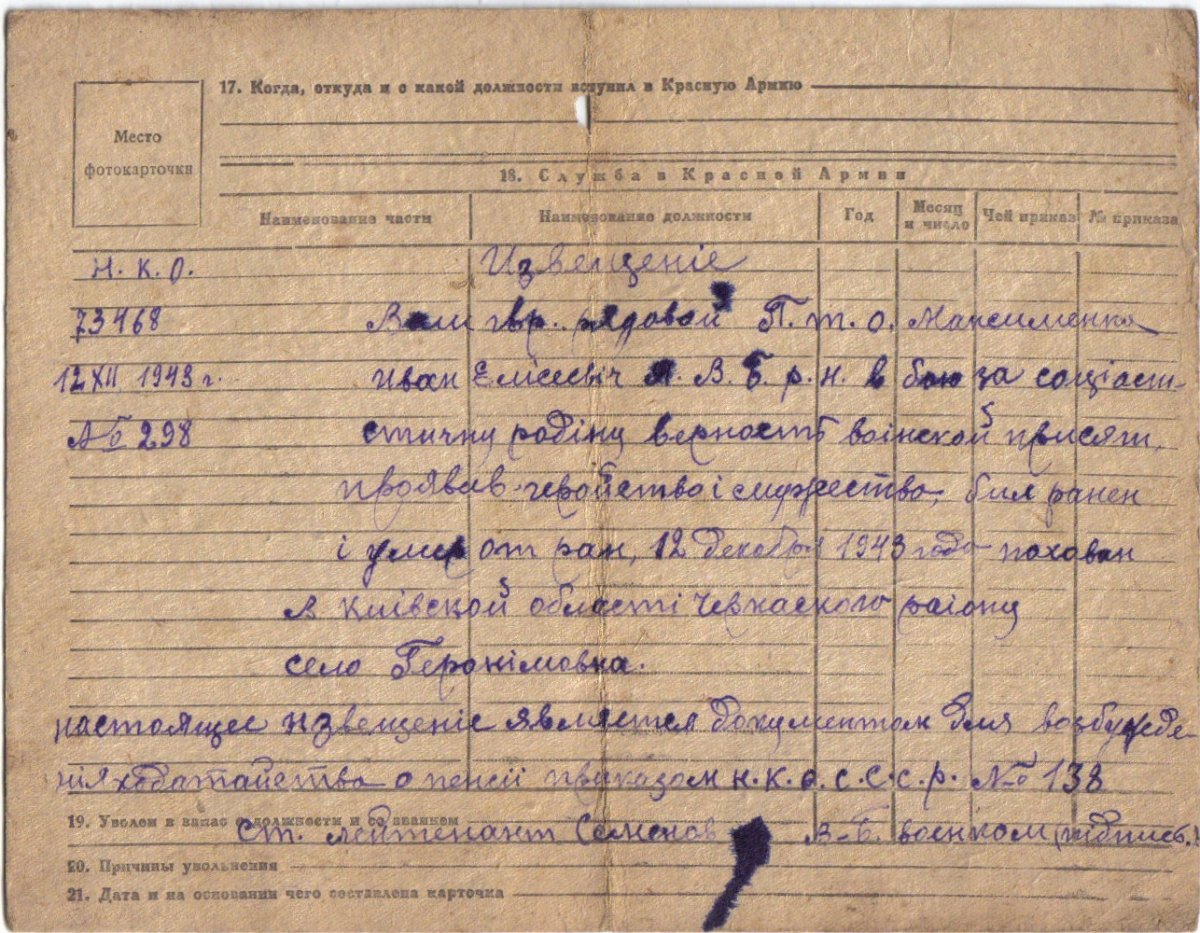 17. Когда, откуда и с какой должности вступил в Красную Армию
Место
фотокарточки
18. Служба в Красной Армии
Наименование части Наименование должности Год Месяц и число Чей приказ № приказа
Н. К. О. Извещеніе
73468 Ваш гвр. рядовой П. т. о. Максименко
12 XII 1943 г. Иван Елісевіч В. Б. р. н. в бою за соціалі-
№ 298 стичну родіну верность воінской присяги,
проявив геройство і мужество, бил ранен
і умер от ран, 12 декабря 1943 года похован
в Київской області Черкаского раіону
село Геронімовка.
настоящее извещеніе является документом для возбужде-
нія ходатайства о пенсії приказом н. к. о. с. с. с. р. № 138
19. Уволен в запас с должности и со званием
ст. лейтенант Семенов В-Б. военком (підпись.)
20. Причины увольнения
21. Дата и на основании чего составлена карточка